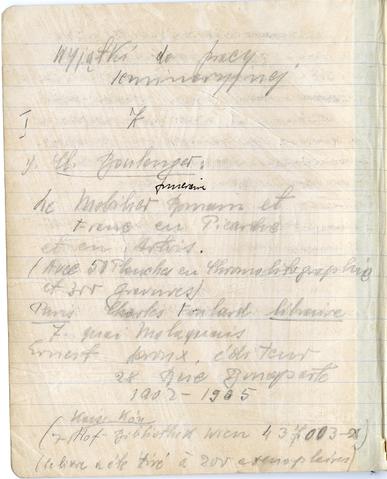 Wyjątki do pracy
seminaryjnej.
I Z
1) C. Boulenger:
funéraire
Le Mobilier Romain et
Franc en Picardie
et en Artois.
(Avec 50 Planches en Chromolithographie
et 300 gravures)
Paris Charles Foulard libraire
7. quai Malaquais
Ernest Leroux, éditeur
28 Rue Bonaparte
1902 - 1905
Kais. Kön.
Hof-Bibliothek Wien 43 003-
(Le livre a été tiré à 200 exemplaires)